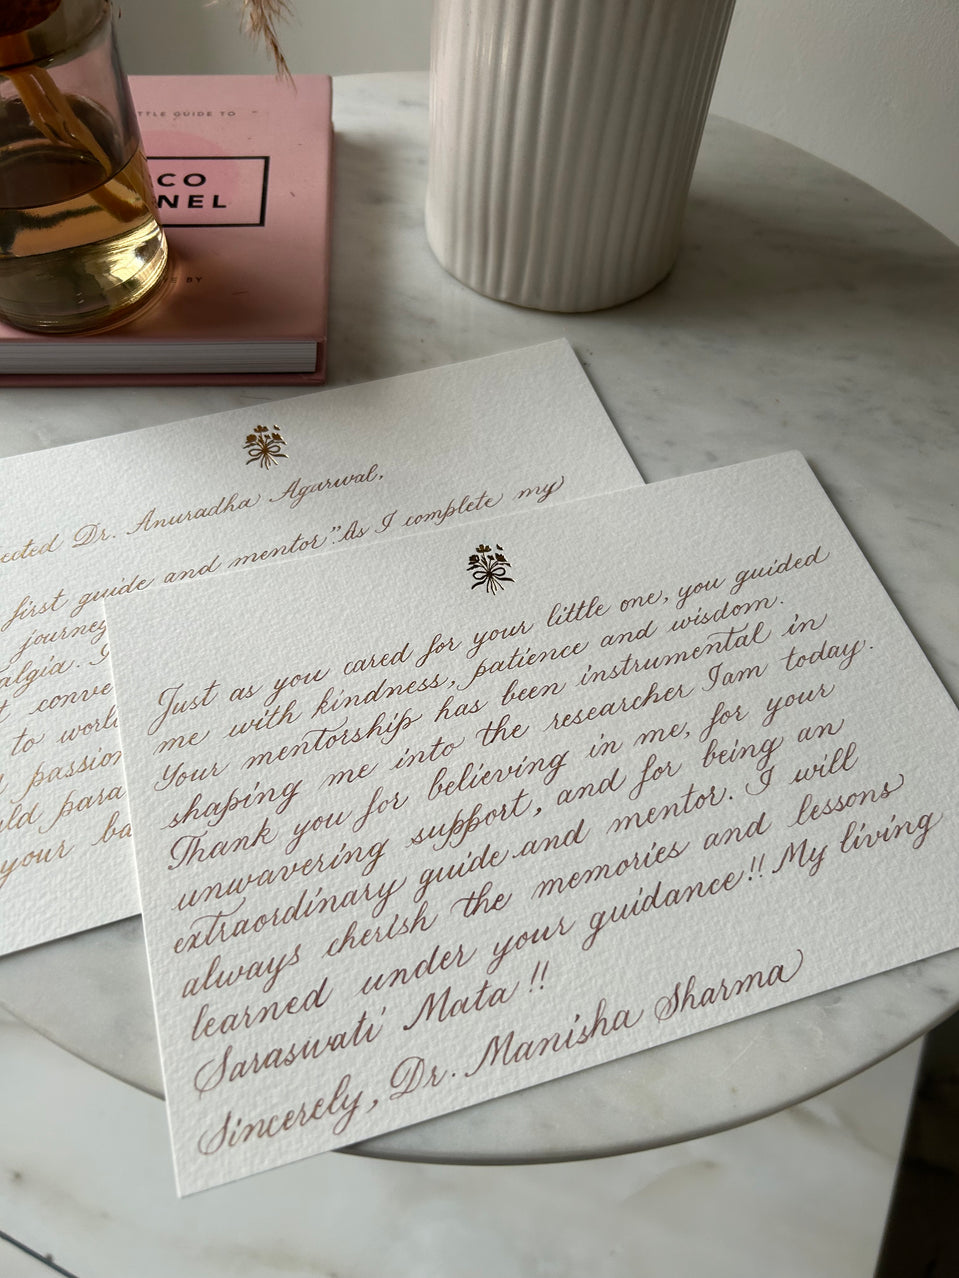 TTLE GUIDE TO
CO
NEL
BY
Dr. Anuradha Agarwal,
first guide and mentor" As I complete my
journey
to
passion
your
Just as you cared for your little one, you guided
me with kindness, patience and wisdom.
Your mentorship has been instrumental in
shaping me into the researcher I am today.
Thank you for believing in me, for your
unwavering support, and for being an
extraordinary guide and mentor. I will
always cherish the memories and lessons
learned under your guidance!! My living
Saraswati Mata!!
Sincerely, Dr. Manisha Sharma